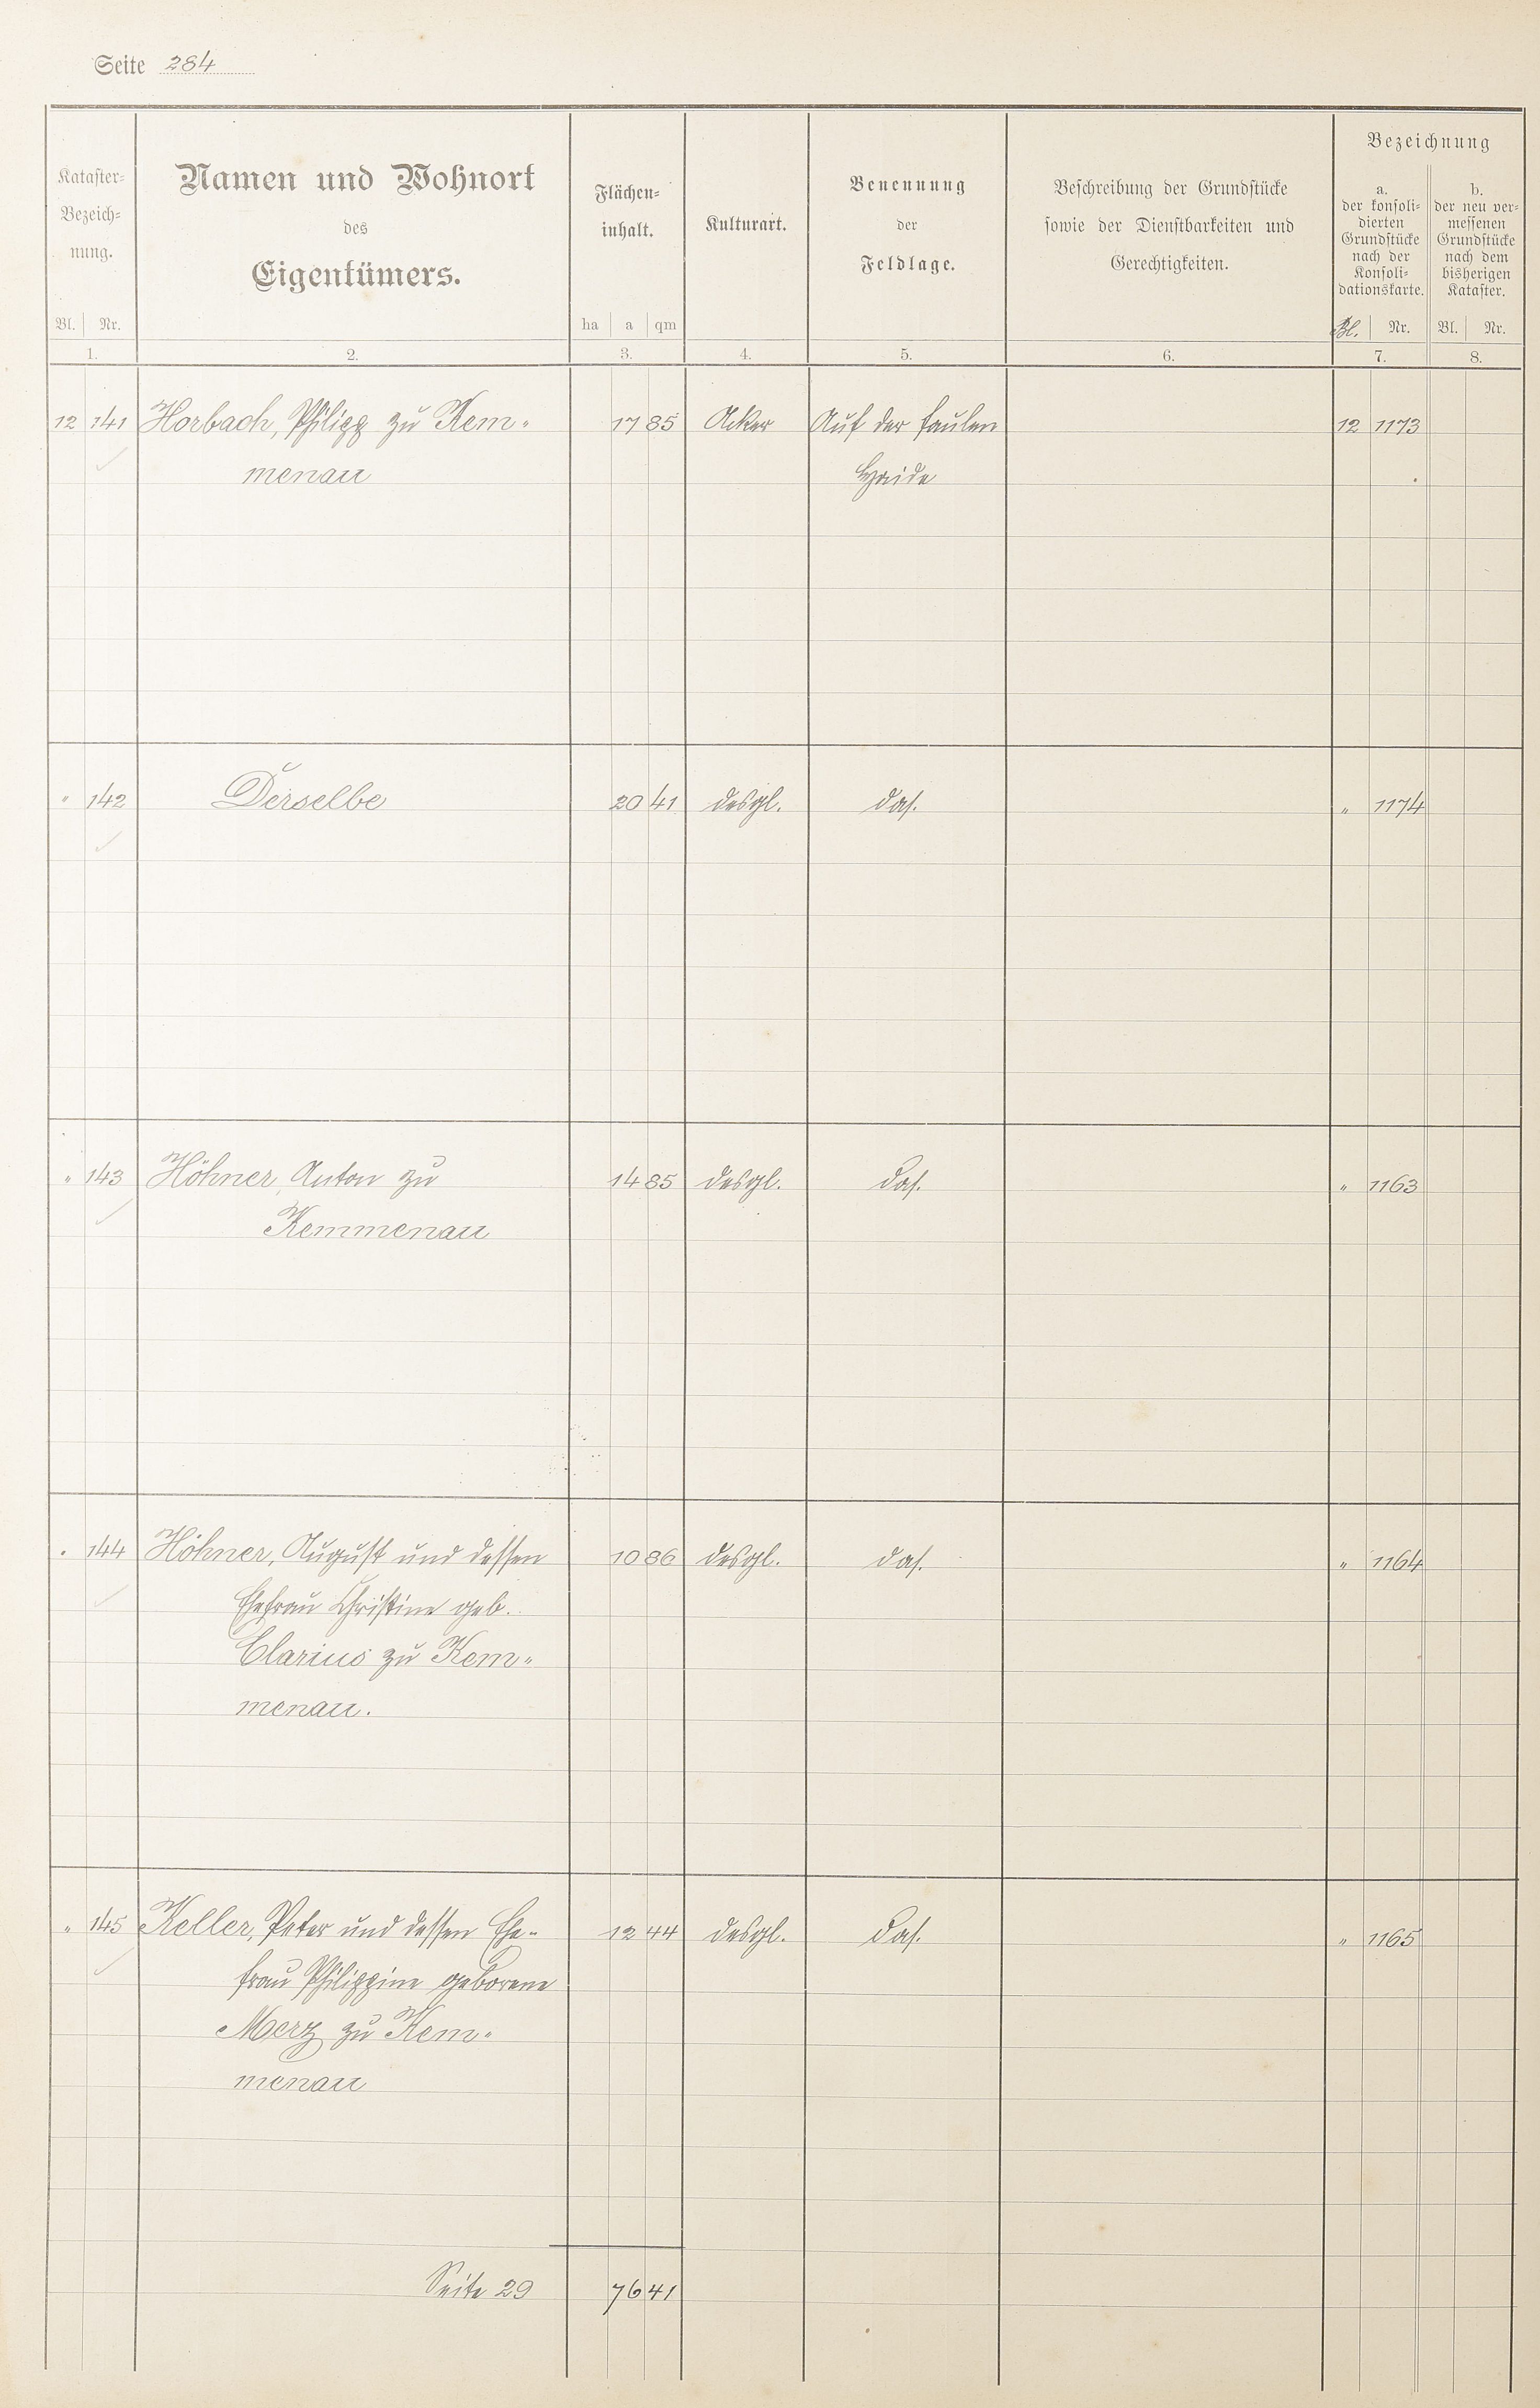 Seite 284
Kataster-Bezeich-nung. Namen und Wohnort des Eigentümers. Flächen-inhalt. Kulturart. Benennung der Feldlage. Beschreibung der Grundstücke sowie der Dienstbarkeiten und Gerechtigkeiten. Bezeichnung
a. der konsoli-dierten Grundstücke nach der Konsoli-dationskarte. b. der neu ver-messenen Grundstücke nach dem bisherigen Kataster.
Bl. Nr. ha a qm Bl. Nr. Bl. Nr.
1. 2. 3. 4. 5. 6. 7. 8.
12 141 Horbach, Philipp zu Kem- 17 85 Acker Auf der faulen 12 1173
menau Haide
" 142 Derselbe 20 41 desgl. das. " 1174
" 143 Höhner, Anton zu 14 85 desgl. das. " 1163
Kemmenau
" 144 Höhner, August und dessen 10 86 desgl. das. " 1164
Ehefrau Christine geb.
Clarius zu Kem-
menau.
" 145 Keller, Peter und dessen Ehe- 12 44 desgl. das. " 1165
frau Philippine geborene
Merz zu Kem-
menau
Seite 29 76 41